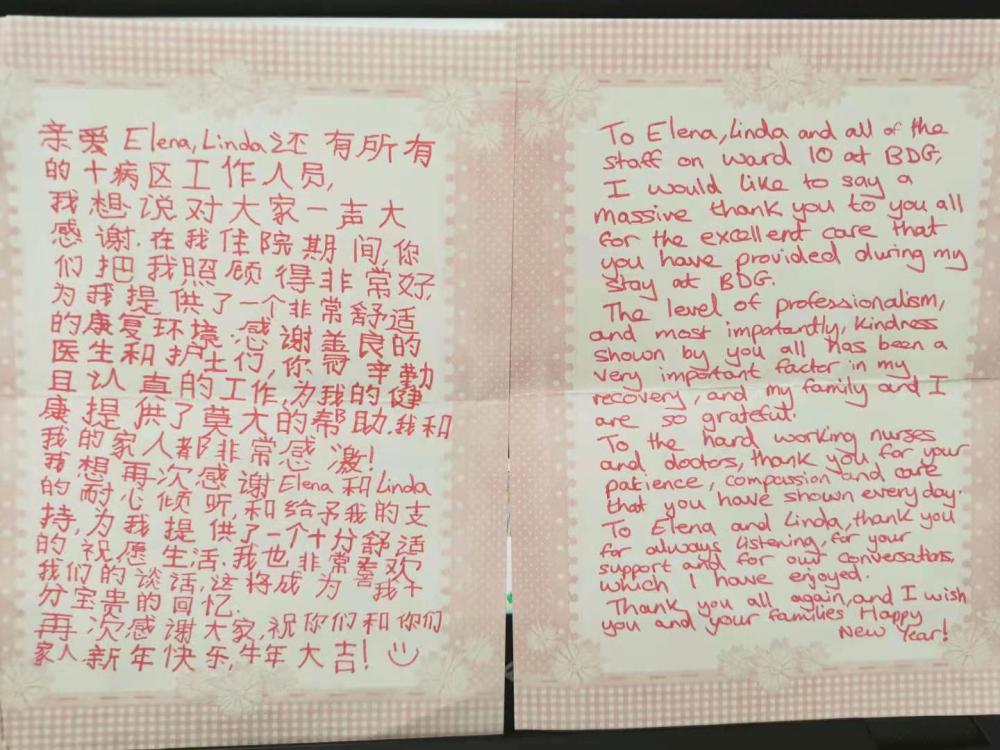 亲爱 Elena, Linda 还有所有
的十病区工作人员,
我想说对大家一声大
感谢.在我住院期间,你
们把我照顾得非常好,
为我提供了一个非常舒适
的康复环境.感谢善良的
医生和护士们,你们辛勤
且认真的工作,为我的健
康提供了莫大的帮助.我和
我的家人都非常感激!
我想再次感谢Elena和Linda
的耐心倾听,和给予我的支
持,为我提供了一个十分舒适
的祝愿生活.我也非常喜欢
我们的谈话,这将成为我十
分宝贵的回忆.
再次感谢大家,祝你们和你们
家人新年快乐,牛年大吉!
To Elena, Linda and all of the
staff on ward 10 at BDG,
I would like to say a
massive thank you to you all
for the excellent care that
you have provided during my
stay at BDG.
The level of professionalism,
and most importantly, kindness
shown by you all has been a
very important factor in my
recovery, and my family and I
are so grateful.
To the hard working nurses
and doctors, thank you for your
patience, compassion and care
that you have shown everyday.
To Elena and Linda, thank you
for always listening, for your
support and for our conversations,
which I have enjoyed.
Thank you all again, and I wish
you and your families Happy
New Year!